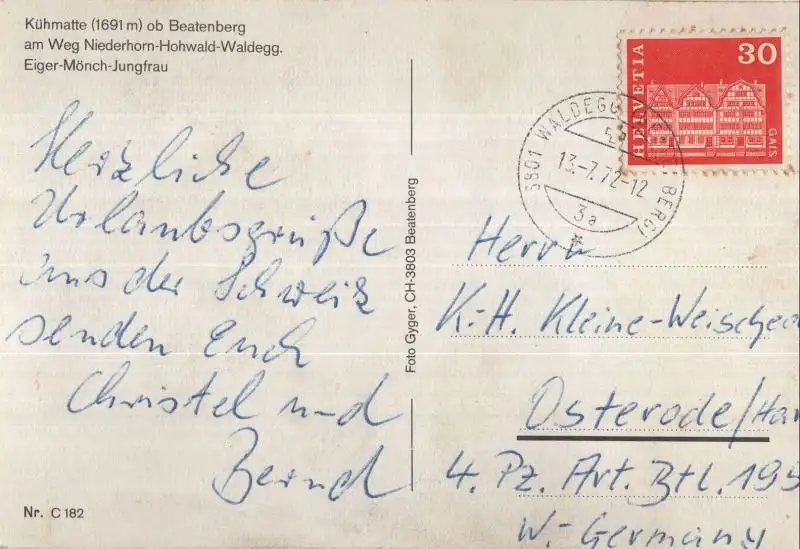 Kühmatte (1691 m) ob Beatenberg
am Weg Niederhorn-Hohwald-Waldegg.
Eiger-Mönch-Jungfrau
Herzliche
Urlaubsgrüße
aus der Schweiz
senden Euch
Christel und
Bernd
Nr. C 182
Foto Gyger, CH-3803 Beatenberg
HELVETIA
30
GAIS
WALDEGG
BERG)
13.-7.72-12
3a
Herrn
K.-H. Kleine-Weischede
Osterode/Har
4. Pz. Art. Btl. 195
W.-Germany